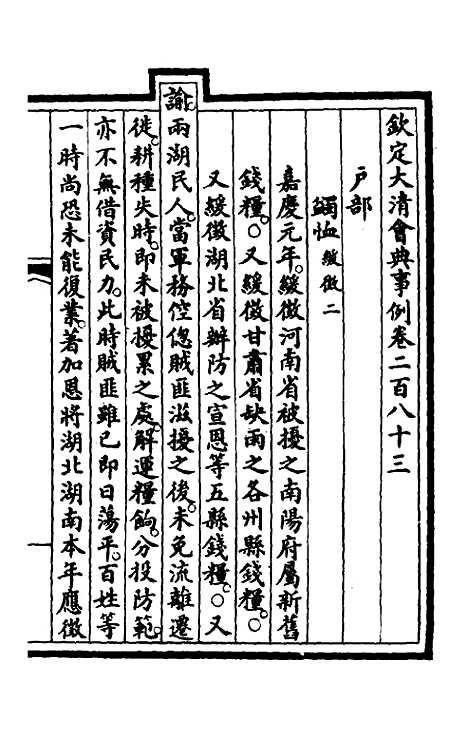 欽定大清會典事例卷二百八十三
戶部
蠲恤緩徵二
嘉慶元年。緩徵河南省被擾之南陽府屬新舊
錢糧。○又緩徵甘肅省缺雨之各州縣錢糧。○
又緩徵湖北省辦防之宣恩等五縣錢糧。○又
諭。兩湖民人。當軍務倥傯。賊匪滋擾之後。未免流離遷
徙。耕種失時。即未被擾累之處。解運糧餉。分投防範。
亦不無借資民力。此時賊匪雖已即日蕩平。百姓等
一時尚恐未能復業。著加恩將湖北湖南本年應徵